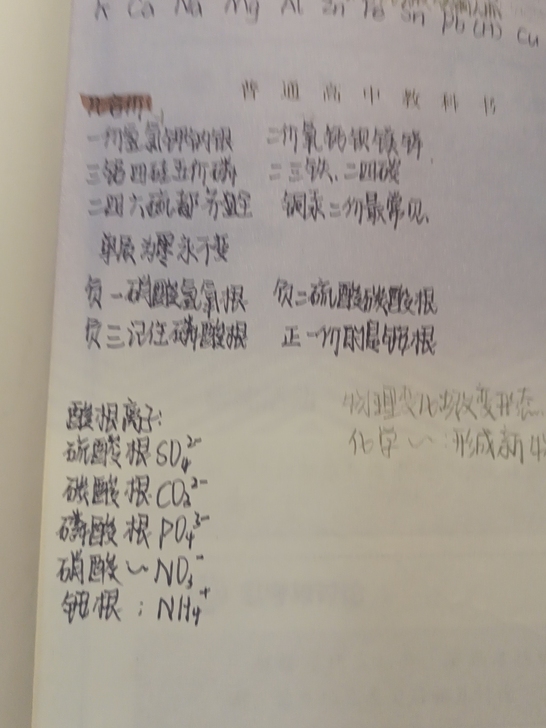 K Ca Na Mg Al Zn Fe Sn Pb (H) Cu
普通高中教科书
化合价
一价氢氯钾钠银 二价氧钙钡镁锌
三铝四硅五价磷 二三铁、二四碳
二四六硫都齐全 铜汞二价最常见
单质为零永不变
负一硝酸氢氧根 负二硫酸碳酸根
负三记住磷酸根 正一价的是铵根
物理变化:改变形态
化学~:形成新
酸根离子:
硫酸根SO₄²⁻
碳酸根CO₃²⁻
磷酸根PO₄³⁻
硝酸~NO₃⁻
铵根:NH₄⁺